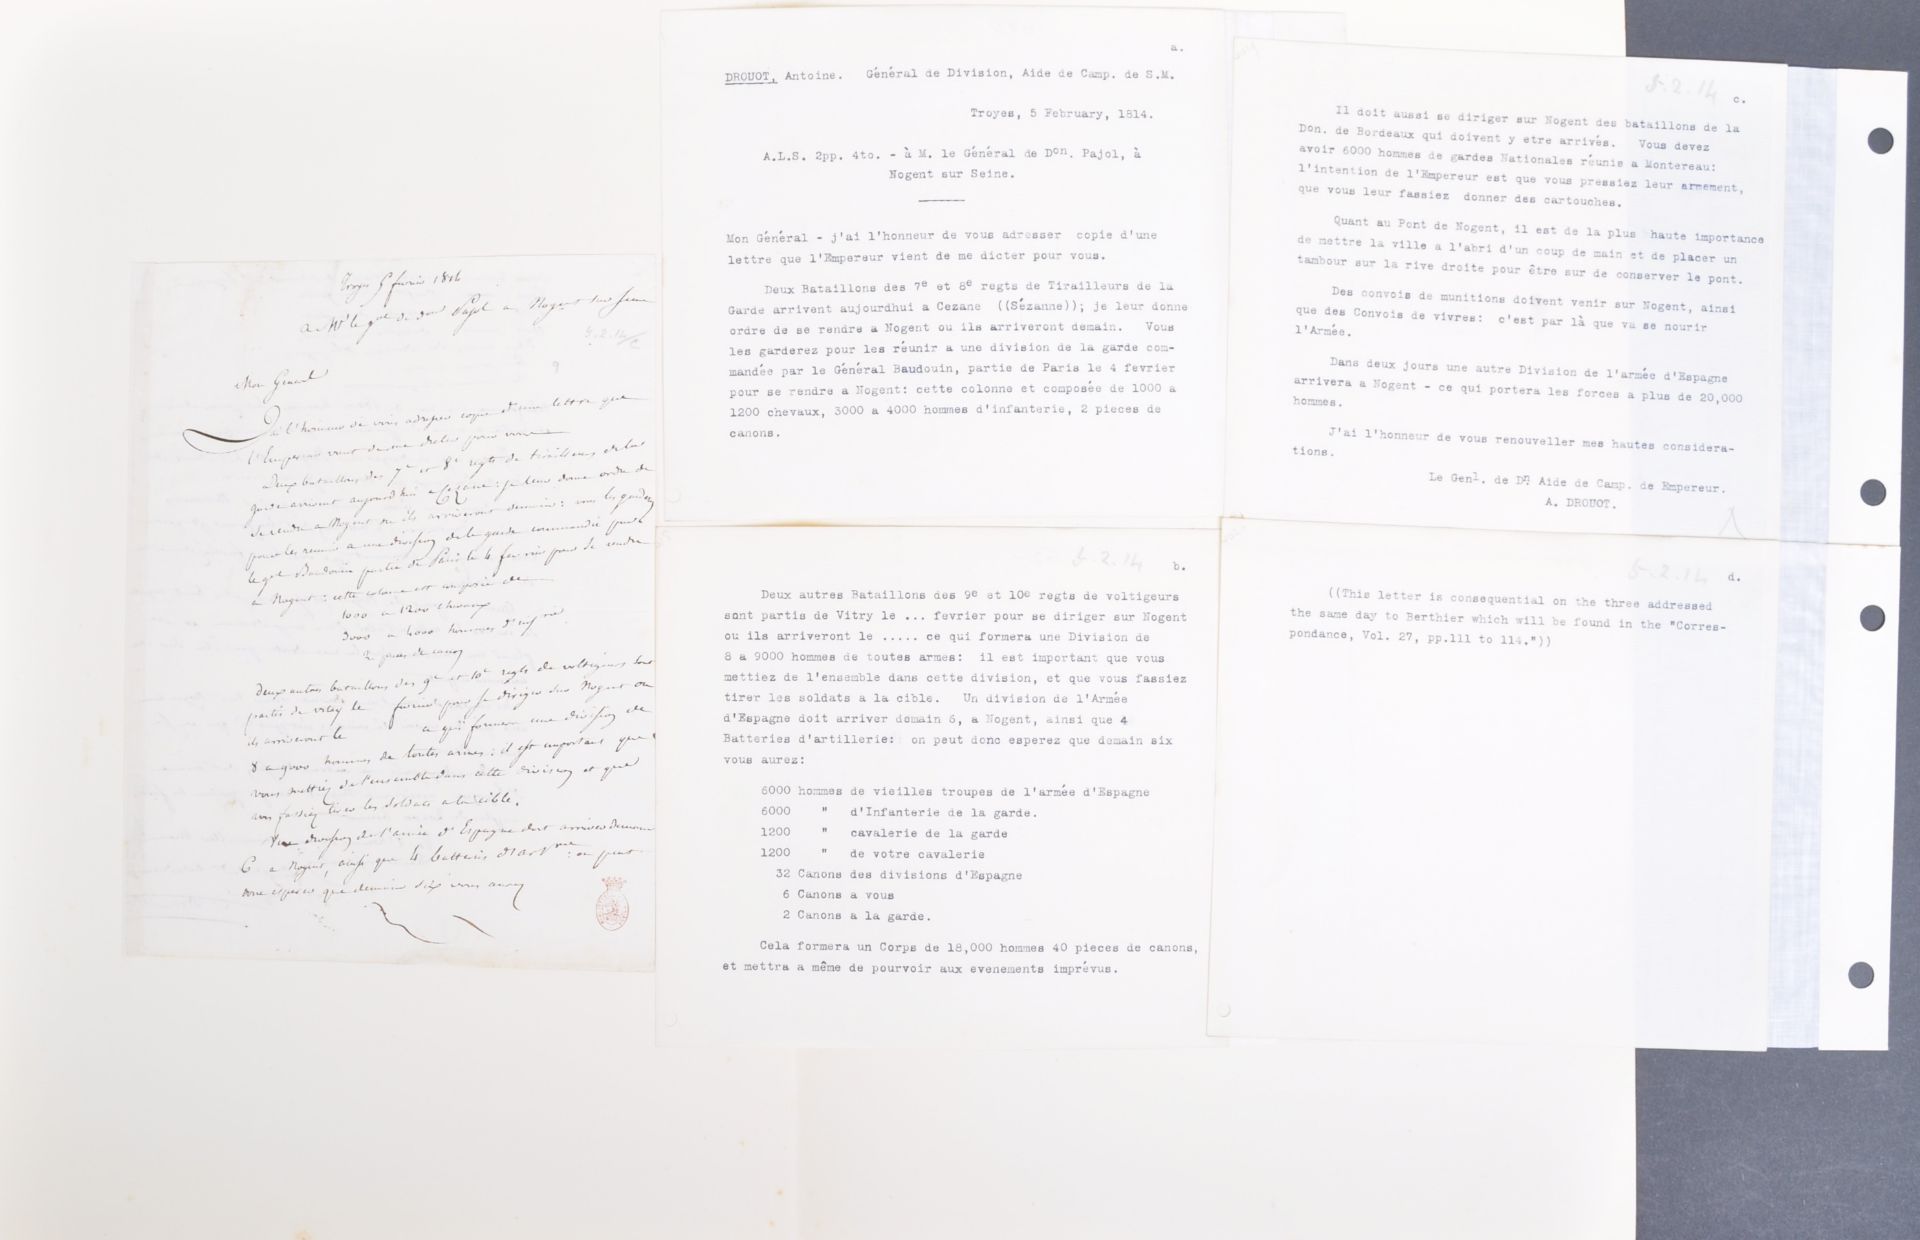 Troyes 5 fevrier 1814
a Mr le gal de don Pajol a Nogent sur Seine
5.2.14/c
9
Mon General
J'ai l'honneur de vous adresser copie d'une lettre que
l'Empereur vient de me dicter pour vous
Deux bataillons des 7e et 8e regts de tirailleurs de la
garde arrivent aujourd'hui a Cezane : je leur donne ordre de
se rendre a Nogent ou ils arriveront demain : vous les garderez
pour les reunir a une division de la garde commandée par
le gal Baudouin partie de Paris le 4 fevrier pour se rendre
a Nogent : cette colonne est composée de
1000 a 1200 chevaux
3000 a 4000 hommes d'infrie
2 pieces de canon
Deux autres bataillons des 9e et 10e regts de voltigeurs sont
partis de vitry le fevrier pour se diriger sur Nogent ou
ils arriveront le ce qui formera une division de
8 a 9000 hommes de toutes armes : il est important que
vous mettiez de l'ensemble dans cette division et que
vous fassiez tirer les soldats a la cible.
Une division de l'armée d'Espagne doit arriver demain
6 a Nogent, ainsi que 4 batteries d'artrie : on peut
donc esperer que demain six vous aurez
a.
DROUOT, Antoine. Général de Division, Aide de Camp. de S.M.
Troyes, 5 February, 1814.
A.L.S. 2pp. 4to. - à M. le Général de Don. Pajol, à
Nogent sur Seine.
Mon Général - j'ai l'honneur de vous adresser copie d'une
lettre que l'Empereur vient de me dicter pour vous.
Deux Bataillons des 7e et 8e regts de Tirailleurs de la
Garde arrivent aujourdhui a Cezane ((Sézanne)); je leur donne
ordre de se rendre a Nogent ou ils arriveront demain. Vous
les garderez pour les réunir a une division de la garde com-
mandée par le Général Baudouin, partie de Paris le 4 fevrier
pour se rendre a Nogent: cette colonne et composée de 1000 a
1200 chevaux, 3000 a 4000 hommes d'infanterie, 2 pieces de
canons.
5.2.14
b.
Deux autres Bataillons des 9e et 10e regts de voltigeurs
sont partis de Vitry le ... fevrier pour se diriger sur Nogent
ou ils arriveront le ..... ce qui formera une Division de
8 a 9000 hommes de toutes armes: il est important que vous
mettiez de l'ensemble dans cette division, et que vous fassiez
tirer les soldats a la cible. Un division de l'Armée
d'Espagne doit arriver domain 6, a Nogent, ainsi que 4
Batteries d'artillerie: on peut donc esperez que demain six
vous aurez:
6000 hommes de vieilles troupes de l'armée d'Espagne
6000 " d'Infanterie de la garde.
1200 " cavalerie de la garde
1200 " de votre cavalerie
32 Canons des divisions d'Espagne
6 Canons a vous
2 Canons a la garde.
Cela formera un Corps de 18,000 hommes 40 pieces de canons,
et mettra a même de pourvoir aux evenements imprévus.
5.2.14
c.
Il doit aussi se diriger sur Nogent des bataillons de la
Don. de Bordeaux qui doivent y etre arrivés. Vous devez
avoir 6000 hommes de gardes Nationales réunis a Montereau:
l'intention de l'Empereur est que vous pressiez leur armement,
que vous leur fassiez donner des cartouches.
Quant au Pont de Nogent, il est de la plus haute importance
de mettre la ville a l'abri d'un coup de main et de placer un
tambour sur la rive droite pour être sur de conserver le pont.
Des convois de munitions doivent venir sur Nogent, ainsi
que des Convois de vivres: c'est par là que va se nourir
l'Armée.
Dans deux jours une autre Division de l'armée d'Espagne
arrivera a Nogent - ce qui portera les forces a plus de 20,000
hommes.
J'ai l'honneur de vous renouveller mes hautes considera-
tions.
Le Genl. de Dn Aide de Camp. de Empereur.
A. DROUOT.
5.2.14
d.
((This letter is consequential on the three addressed
the same day to Berthier which will be found in the "Corres-
pondance, Vol. 27, pp.111 to 114."))